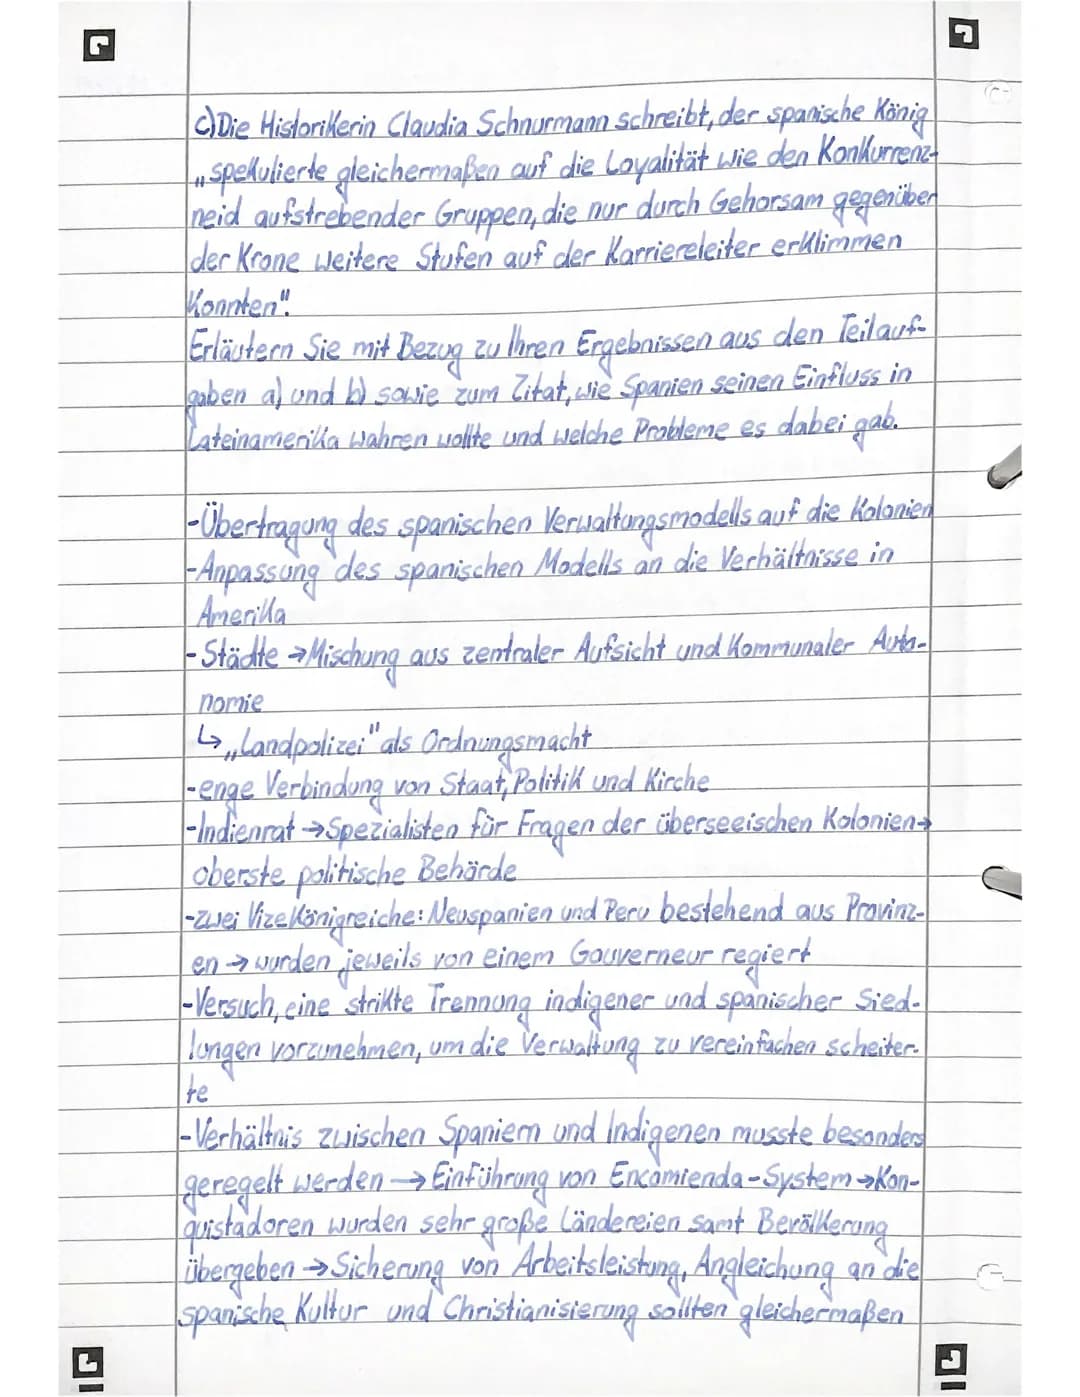 c) Die Historikerin Claudia Schnurmann schreibt, der spanische König
„spekulierte gleichermaßen auf die Loyalität wie den Konkurrenz-
neid aufstrebender Gruppen, die nur durch Gehorsam gegenüber
der Krone weitere Stufen auf der Karriereleiter erklimmen
konnten".
Erläutern Sie mit Bezug zu Ihren Ergebnissen aus den Teilauf-
gaben a) und b) sowie zum Zitat, wie Spanien seinen Einfluss in
Lateinamerika wahren wollte und welche Probleme es dabei gab.
-Übertragung des spanischen Verwaltungsmodells auf die Kolonien
-Anpassung des spanischen Modells an die Verhältnisse in
Amerika
-Städte →Mischung aus zentraler Aufsicht und kommunaler Auto-
nomie
↳„Landpolizei" als Ordnungsmacht
-enge Verbindung von Staat, Politik und Kirche
-Indienrat →Spezialisten für Fragen der überseeischen Kolonien→
oberste politische Behörde
-zwei Vizekönigreiche: Neuspanien und Peru bestehend aus Provinz-
en → wurden jeweils von einem Gouverneur regiert
-Versuch, eine strikte Trennung indigener und spanischer Sied-
lungen vorzunehmen, um die Verwaltung zu vereinfachen scheiter-
te
-Verhältnis zwischen Spaniern und Indigenen musste besonders
geregelt werden → Einführung von Encomienda-System →Kon-
quistadoren wurden sehr große Ländereien samt Bevölkerung
übergeben →Sicherung von Arbeitsleistung, Angleichung an die
spanische Kultur und Christianisierung sollten gleichermaßen